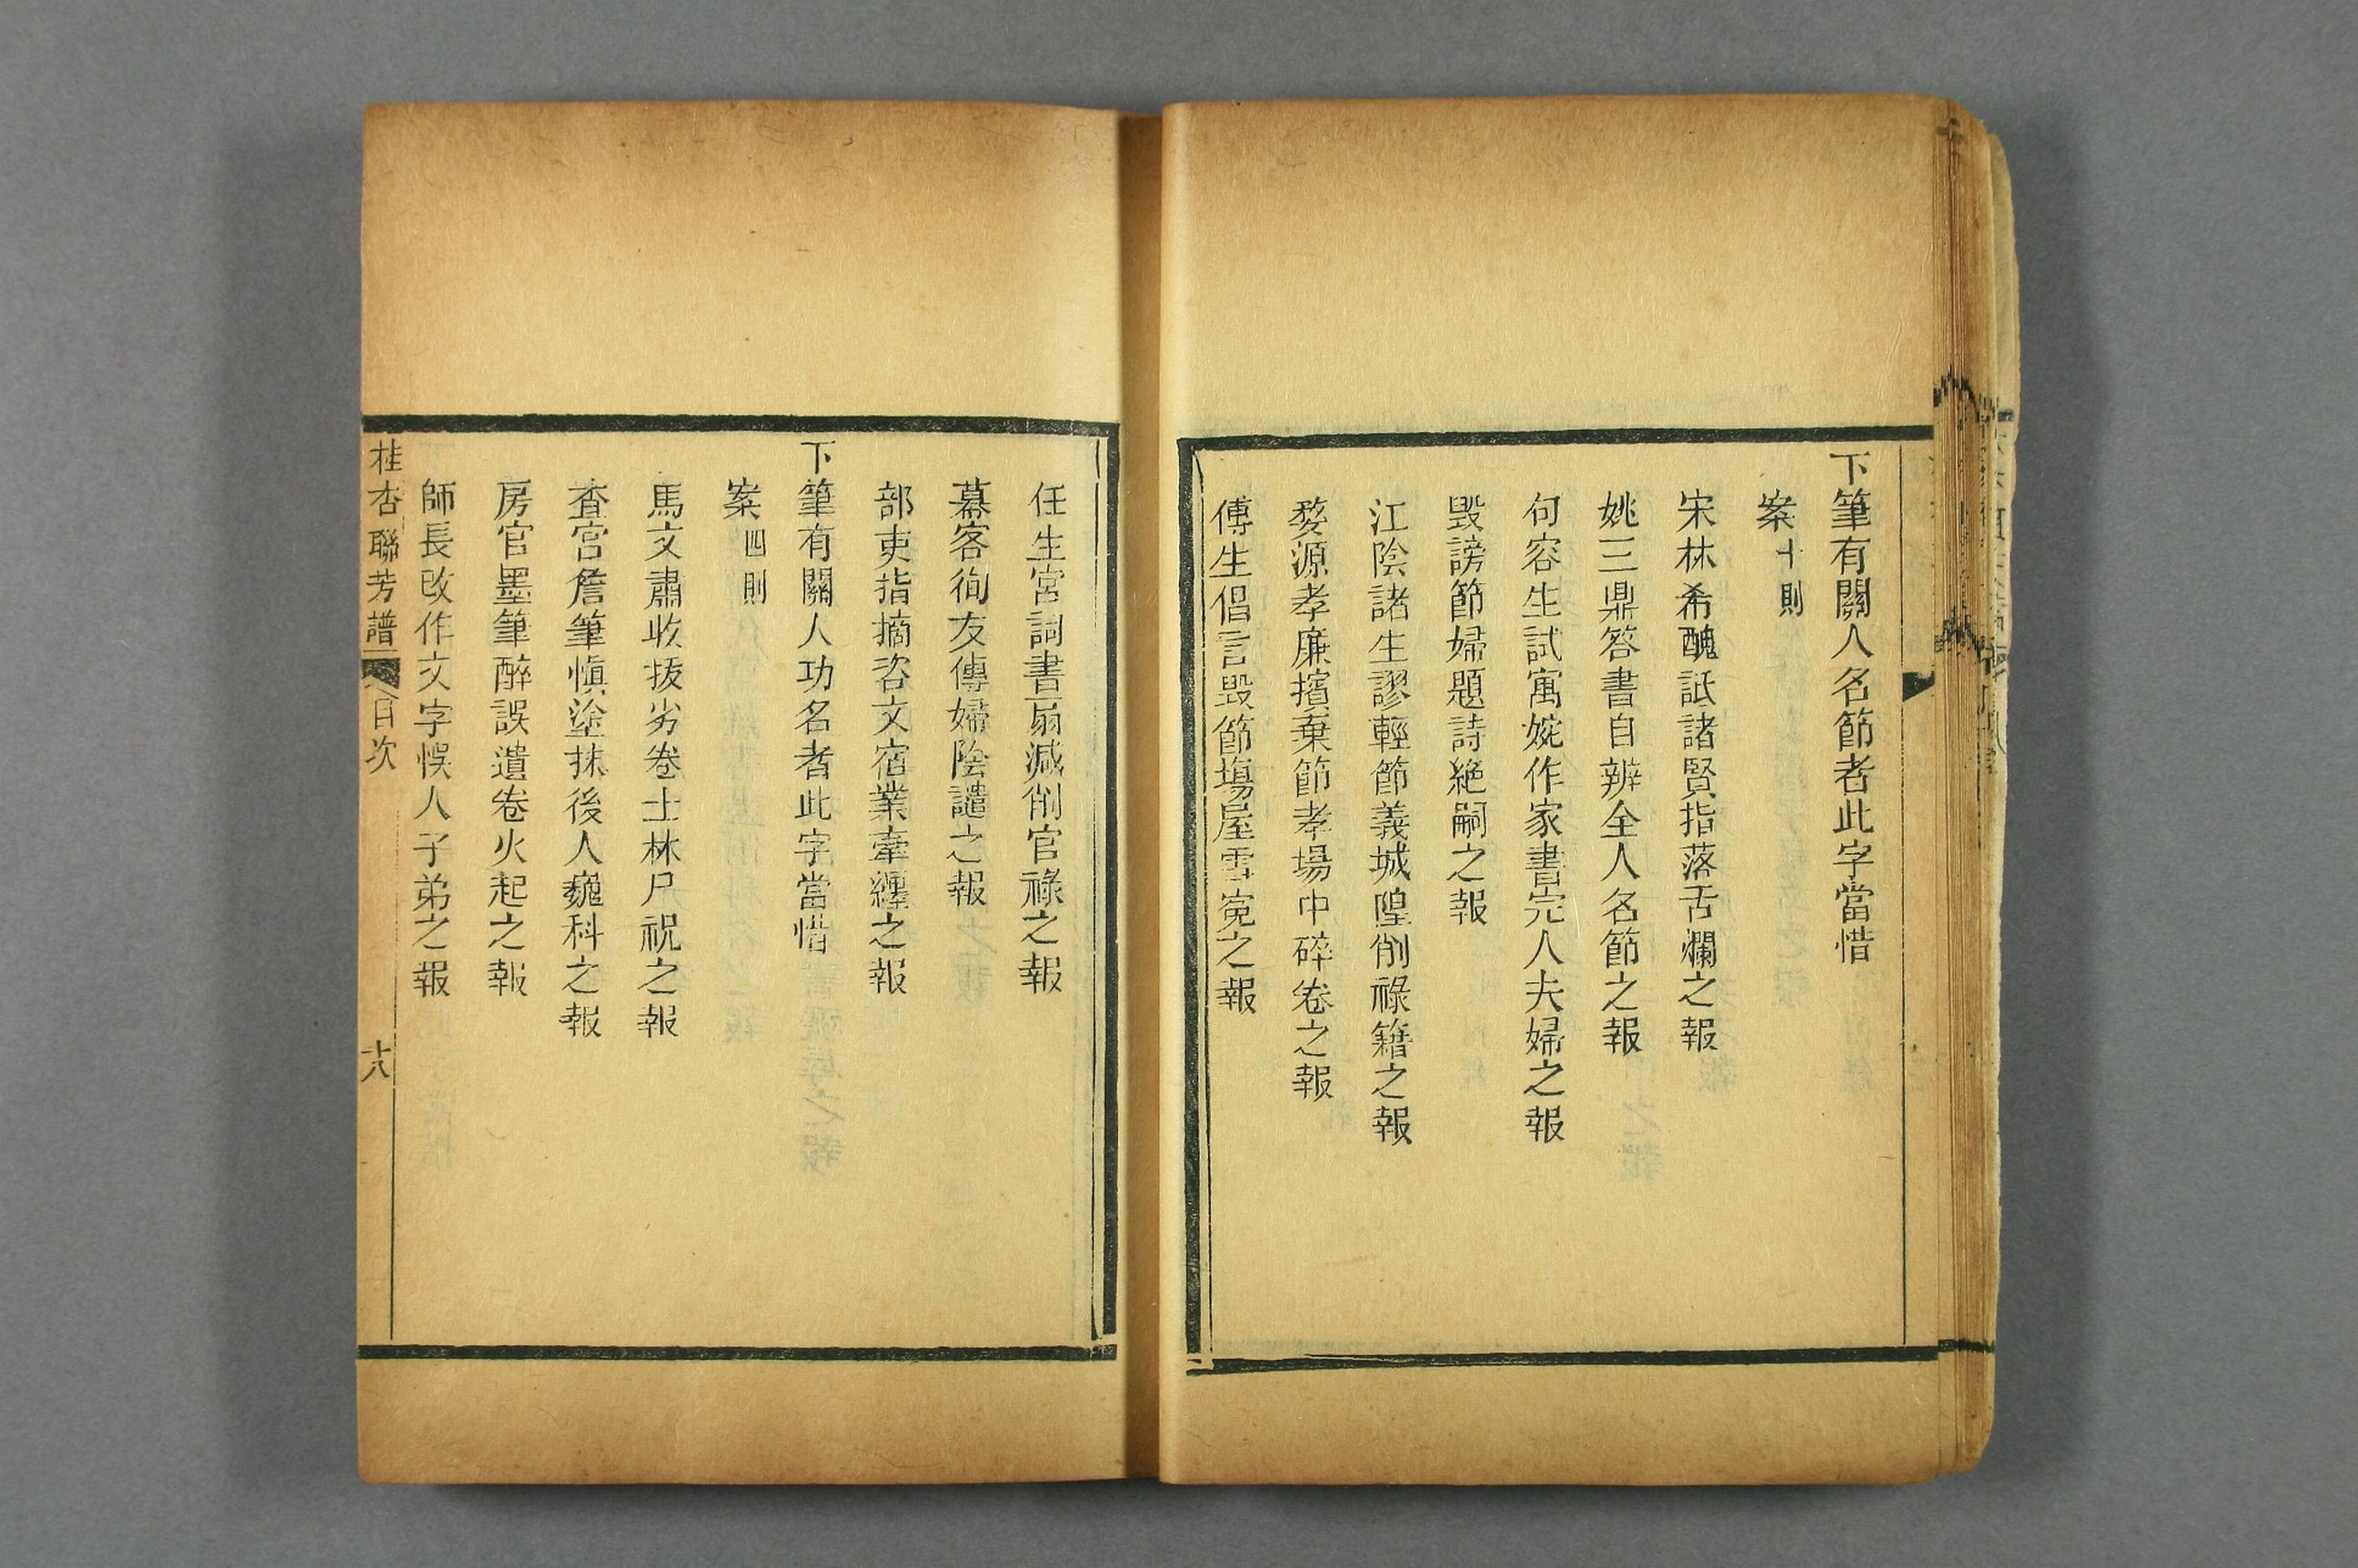 下筆有關人名節者此字當惜
案十則
宋林希醜詆諸賢指落舌爛之報
姚三鼎答書自辨全人名節之報
何容生試寓婉作家書完人夫婦之報
毀謗節婦題詩絶嗣之報
江陰諸生謬輕節義城隍削祿籍之報
婺源孝廉擯棄節孝場中碎卷之報
傅生倡言毀節塲屋雪寃之報
任生宮詞書扇減削官祿之報
幕客徇友傳婦陰譴之報
部吏指摘咨文宿業牽纏之報
下筆有關人功名者此字當惜
案四則
馬文肅收拔劣卷士林尸祝之報
查宮詹筆愼塗抹後人巍科之報
房官墨筆醉誤遺卷火起之報
師長改作文字悞人子弟之報
桂杏聯芳譜 目次 十八